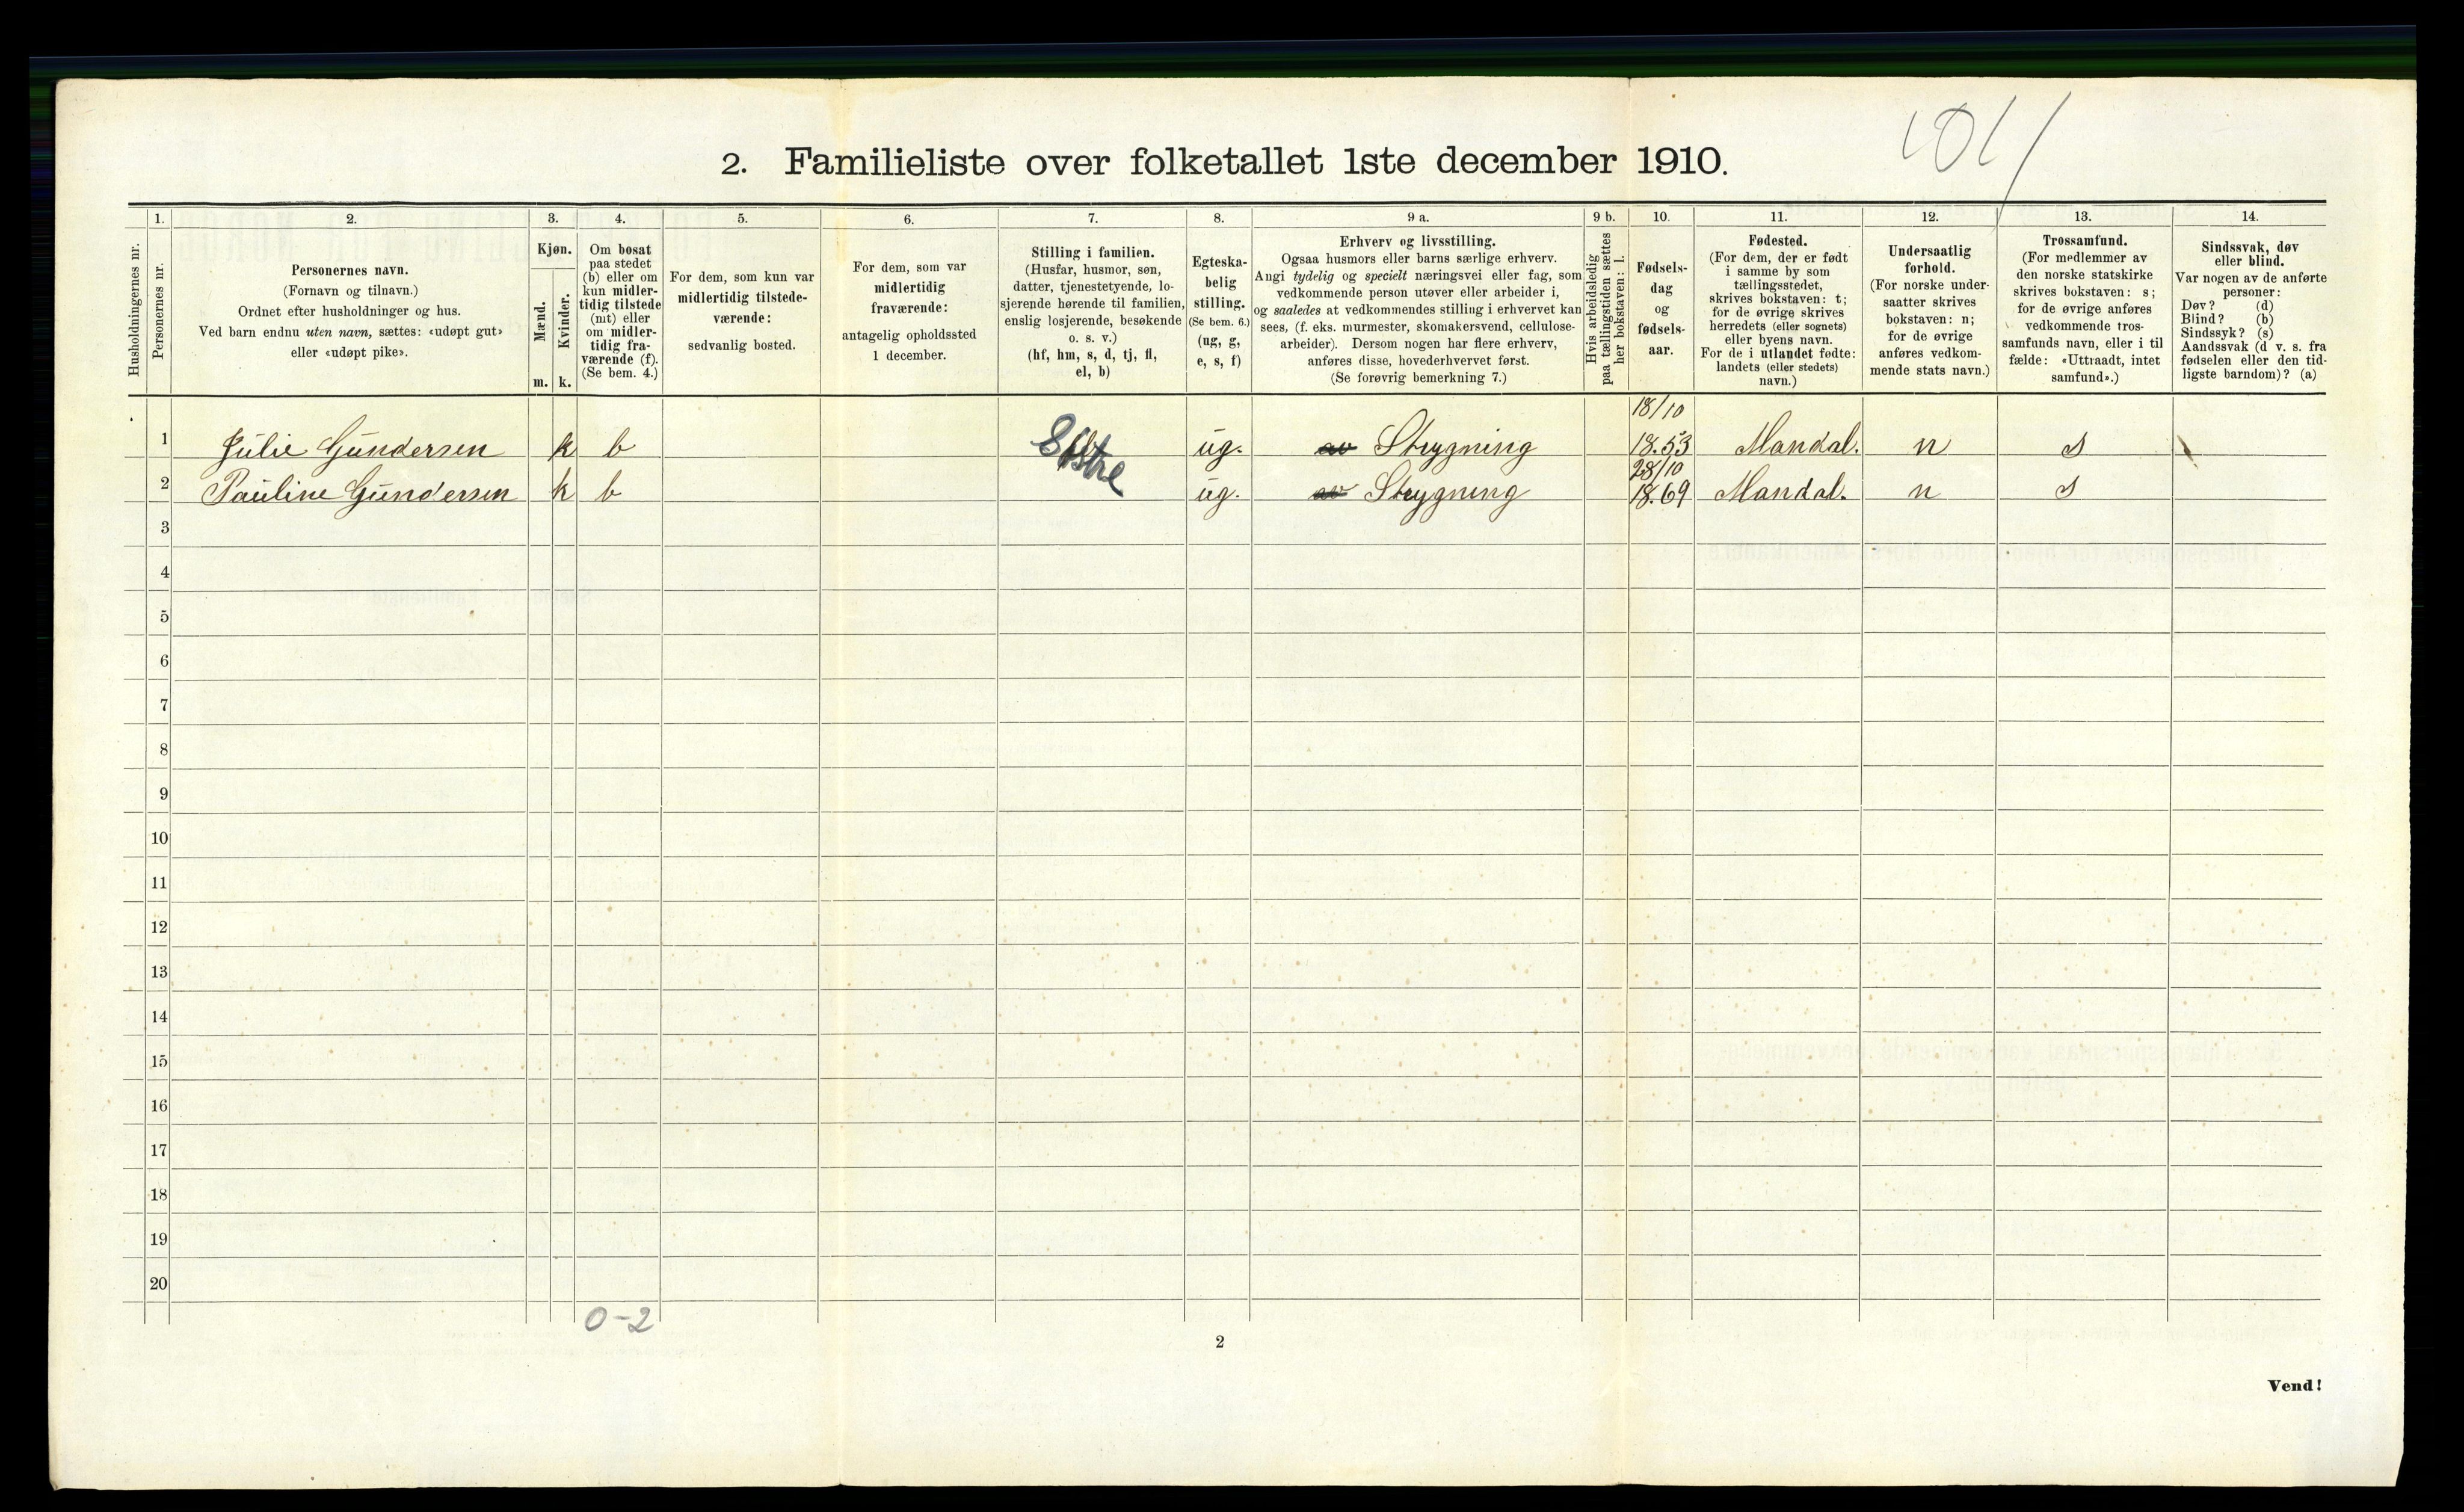 101
2. Familieliste over folketallet 1ste december 1910.
1. 2. 3. 4. 5. 6. 7. 8. 9 a. 9 b. 10. 11. 12. 13. 14.
Husholdningernes nr.
Personernes nr.
Personernes navn.
(Fornavn og tilnavn.)
Ordnet efter husholdninger og hus.
Ved barn endnu uten navn, sættes: «udøpt gut»
eller «udøpt pike».
Kjøn.
Mænd.
Kvinder.
m. k.
Om bosat
paa stedet
(b) eller om
kun midler-
tidig tilstede
(mt) eller
om midler-
tidig fra-
værende (f).
(Se bem. 4.)
For dem, som kun var
midlertidig tilstede-
værende:
sedvanlig bosted.
For dem, som var
midlertidig
fraværende:
antagelig opholdssted
1 december.
Stilling i familien.
(Husfar, husmor, søn,
datter, tjenestetyende, lo-
sjerende hørende til familien,
enslig losjerende, besøkende
o. s. v.)
(hf, hm, s, d, tj, fl,
el, b)
Egteska-
belig
stilling.
(Se bem. 6.)
(ug, g,
e, s, f)
Erhverv og livsstilling.
Ogsaa husmors eller barns særlige erhverv.
Angi tydelig og specielt næringsvei eller fag, som
vedkommende person utøver eller arbeider i,
og saaledes at vedkommendes stilling i erhvervet kan
sees, (f. eks. murmester, skomakersvend, cellulose-
arbeider). Dersom nogen har flere erhverv,
anføres disse, hovederhvervet først.
(Se forøvrig bemerkning 7.)
Hvis arbeidsledig
paa tællingstiden sættes
her bokstaven: l.
Fødsels-
dag
og
fødsels-
aar.
Fødested.
(For dem, der er født
i samme by som
tællingsstedet,
skrives bokstaven: t;
for de øvrige skrives
herredets (eller sognets)
eller byens navn.
For de i utlandet fødte:
landets (eller stedets)
navn.)
Undersaatlig
forhold.
(For norske under-
saatter skrives
bokstaven: n;
for de øvrige
anføres vedkom-
mende stats navn.)
Trossamfund.
(For medlemmer av
den norske statskirke
skrives bokstaven: s;
for de øvrige anføres
vedkommende tros-
samfunds navn, eller i til
fælde: «Uttraadt, intet
samfund».)
Sindssvak, døv
eller blind.
Var nogen av de anførte
personer:
Døv? (d)
Blind? (b)
Sindssyk? (s)
Aandssvak (d v. s. fra
fødselen eller den tid-
ligste barndom)? (a)
1 Julie Gundersen k b ug. av Strygning 18/10 18.53 Mandal. n s
Søstre
2 Pauline Gundersen k b ug. av Strygning 28/10 18.69 Mandal. n s
3
4
5
6
7
8
9
10
11
12
13
14
15
16
17
18
19
20
0-2
2
Vend!